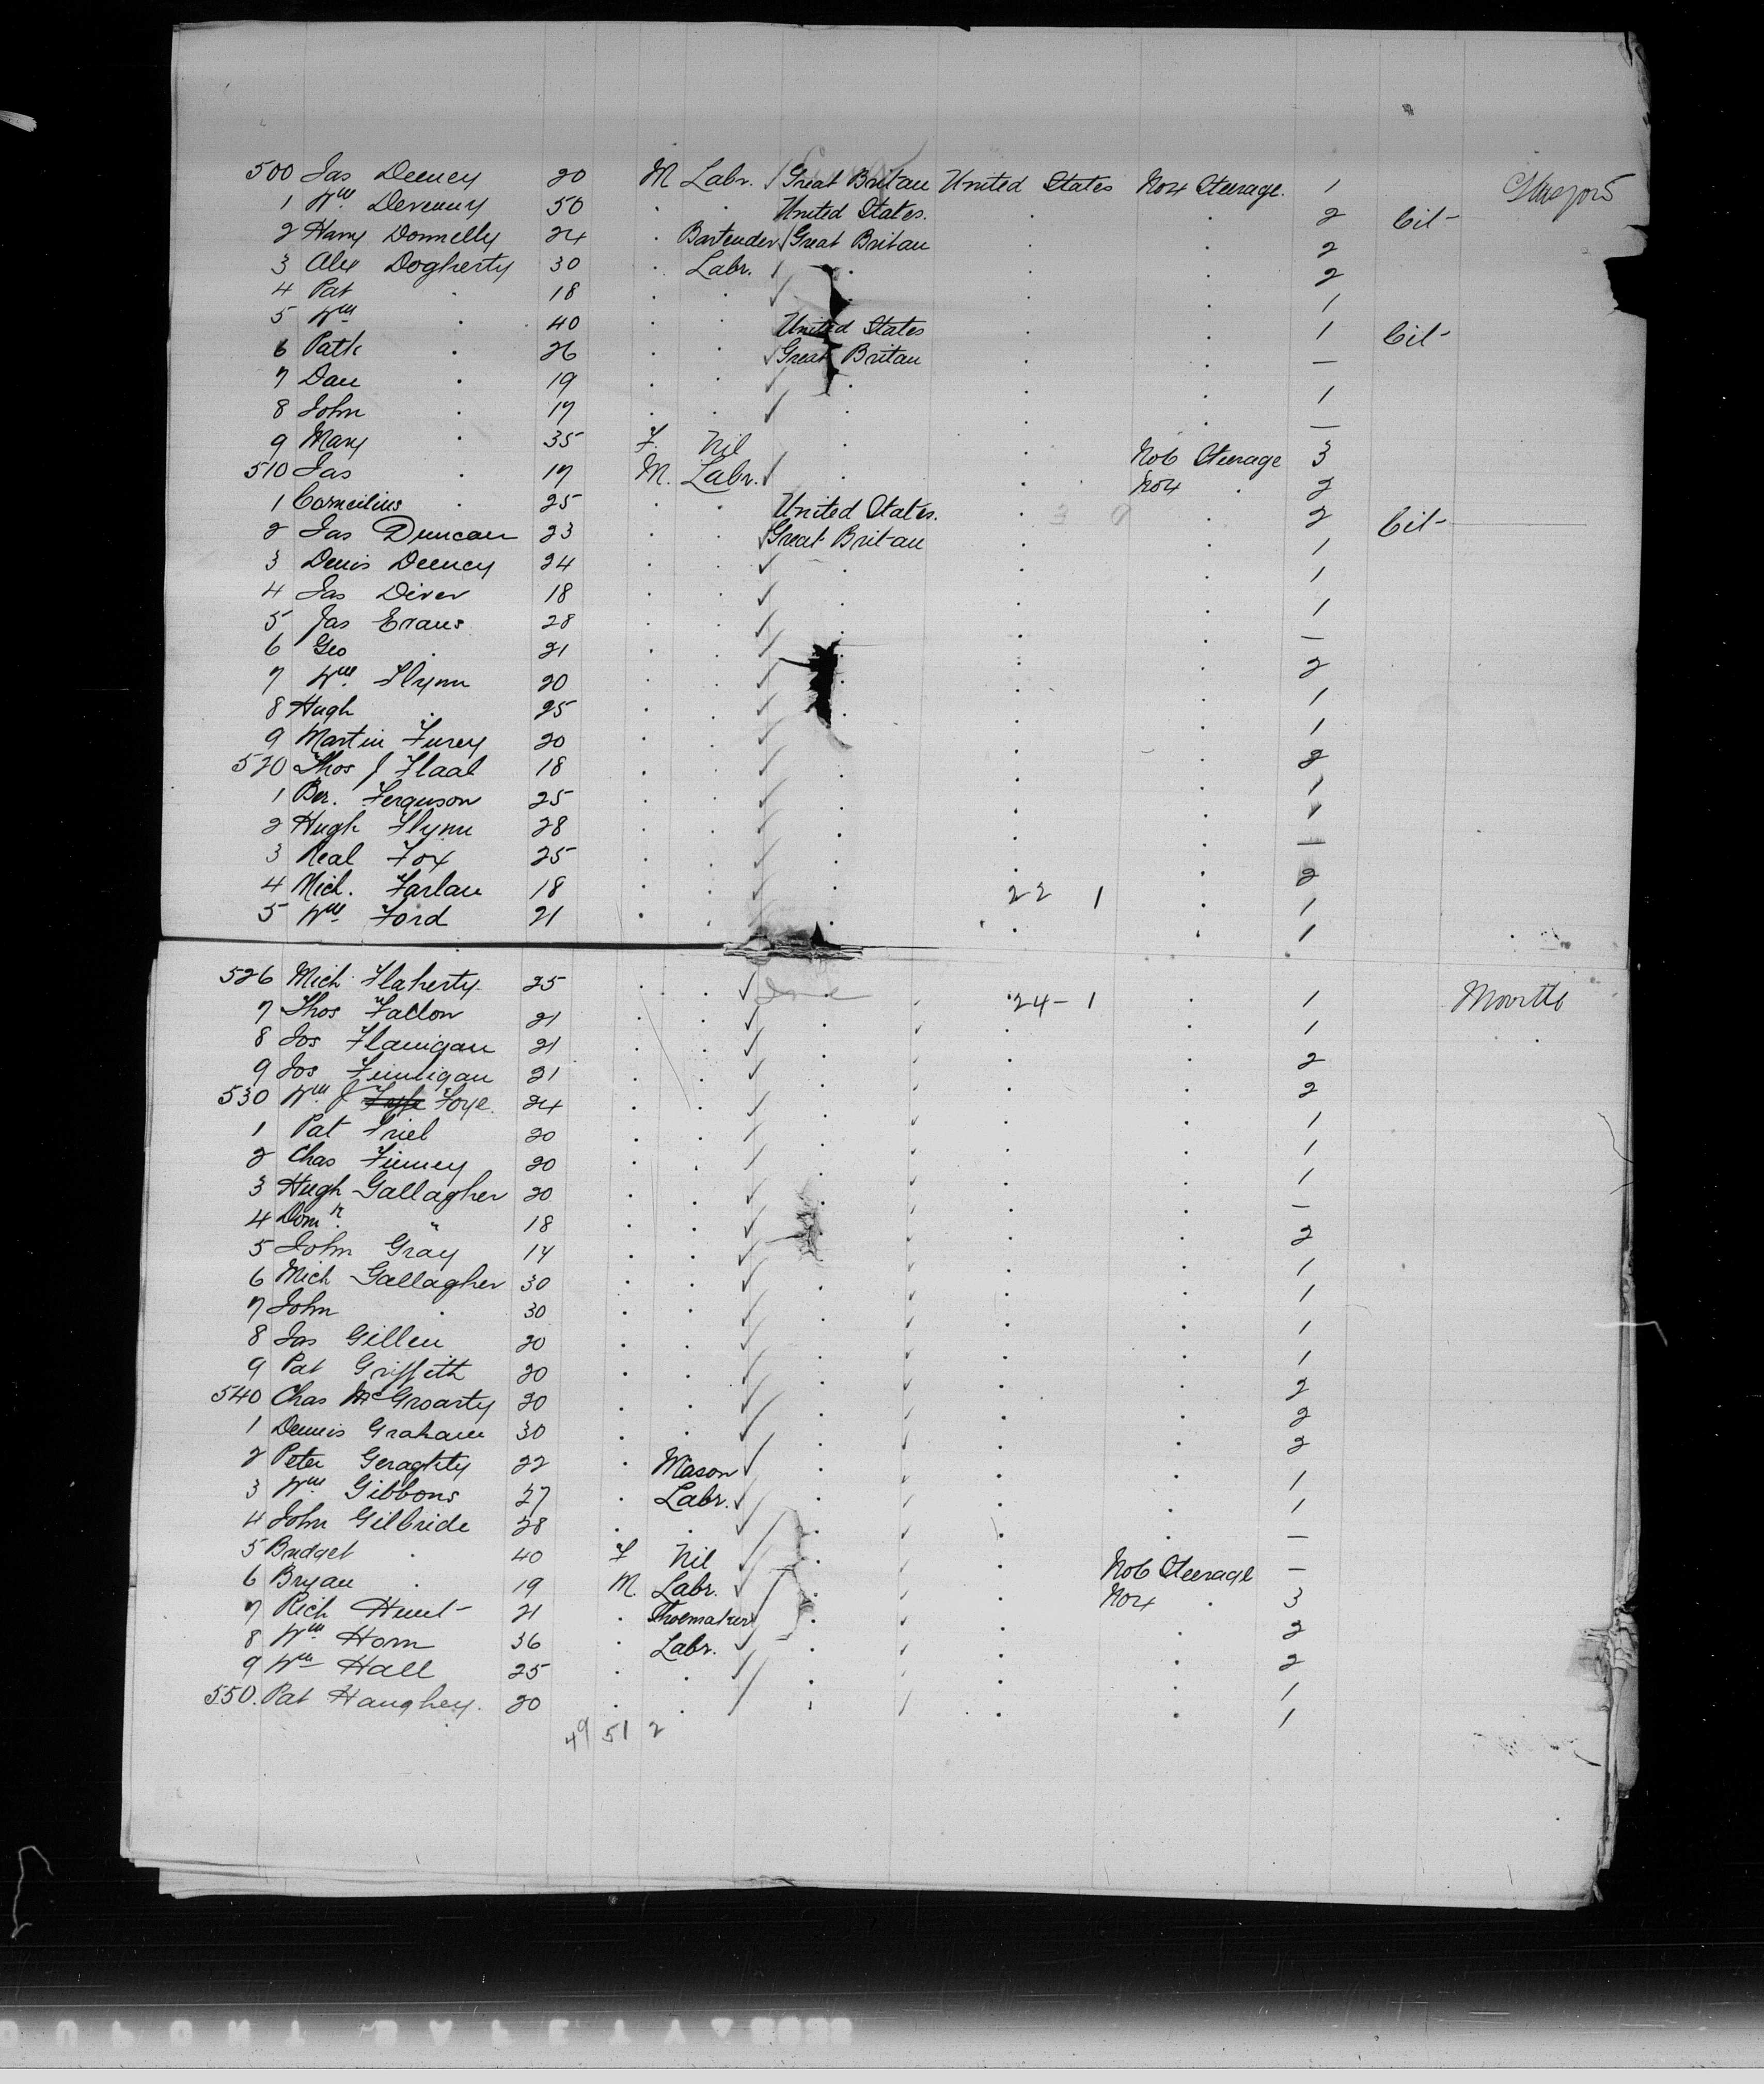 500 Jas Deeney 20 M Labr. Great Britan United States No 4 Steerage. 1
1 Wm. Devenny 50 . . United States. . . 2 Cit-
2 Harry Donnelly 24 . Bartender Great Britan . . 2
3 Alex Dogherty 30 . Labr. . . . 2
4 Pat . 18 . . . . . 1
5 Wm . 40 . . United States . . 1 Cit-
6 Patk . 26 . . Great Britan . . —
7 Dan . 19 . . . . . 1
8 John . 17 . . . . . —
9 Mary . 35 F. Nil . . No 6 Steerage 3
510 Jas . 17 M. Labr. . . No 4 . 2
1 Cornelius . 25 . . United States. . . 2 Cit-
2 Jas Duncan 23 . . Great Britan . . 1
3 Denis Deeney 24 . . . . . 1
4 Jas Diver 18 . . . . . 1
5 Jas Evans 28 . . . . . —
6 Geo . 21 . . . . . 2
7 Wm. Flynn 20 . . . . . 1
8 Hugh . 25 . . . . . 1
9 Martin Furey 20 . . . . . 2
520 Thos J 18 . . . . . 1
1 Ber. Ferguson 25 . . . . . 1
2 Hugh Flynn 28 . . . . . —
3 Neal Fox 25 . . . . . 2
4 Mich. Farlan 18 . . . 22 1 . 1
5 Wm Ford 21 . . . . . 1
526 Mich Flaherty 25 . . . 24-1 . 1
7 Thos Fallon 21 . . . . . 1
8 Jos Flanigan 21 . . . . . 2
9 Jos Finnigan 21 . . . . . 2
530 Wm J Foye. 24 . . . . . 1
1 Pat Friel 20 . . . . . 1
2 Chas Finney 20 . . . . . 1
3 Hugh Gallagher 20 . . . . . —
4 Domk. " 18 . . . . . 2
5 John Gray 14 . . . . . 1
6 Mich Gallagher 30 . . . . . 1
7 John . 30 . . . . . 1
8 Jas Gillen 20 . . . . . 1
9 Pat Griffith 20 . . . . . 2
540 Chas McGroarty 20 . . . . . 2
1 Dennis Graham 30 . . . . . 2
2 Peter Geraghty 22 . Mason . . . 1
3 Wm. Gibbons 27 . Labr. . . . 1
4 John Gilbride 28 . . . . . —
5 Bridget . 40 F Nil . . No 6 Steerage —
6 Bryan . 19 M. Labr. . . No 4 . 3
7 Rich Hunt 21 . Shoemaker . . . 2
8 Wm. Horn 36 . Labr. . . . 2
9 Wm Hall 25 . . . . . 1
550. Pat Haughey. 20 . . . . . 1
49 51 2
DUPONT SAFETY